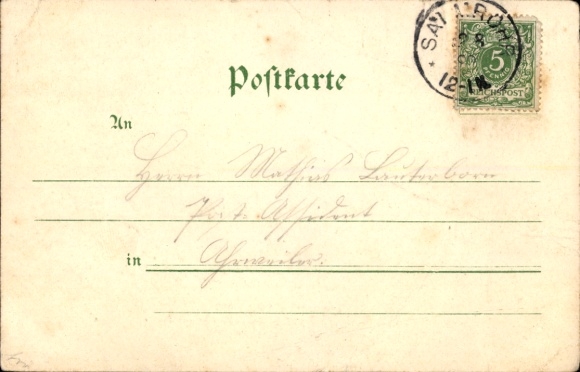 Postkarte
5
PFENNIG
REICHSPOST
12-1N
An
Herrn Mathias Lauterborn
Post-Assistent
in Ahrweiler.